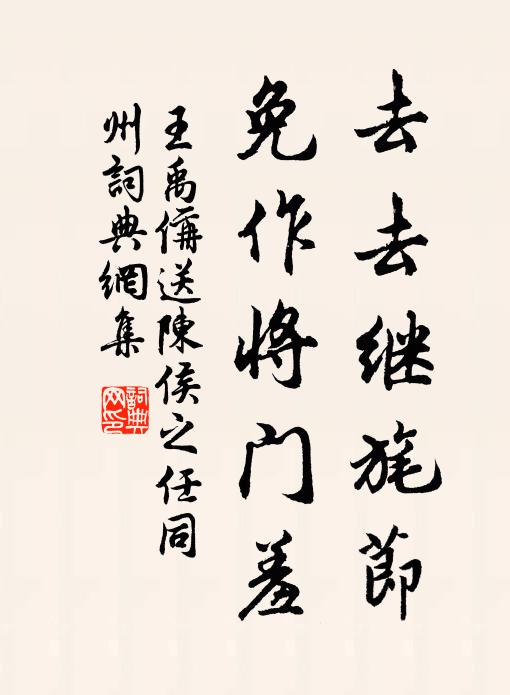 去去继旄節
免作将门羞
王禹偁送陳侯之任同
州詞典網集
詞典网印